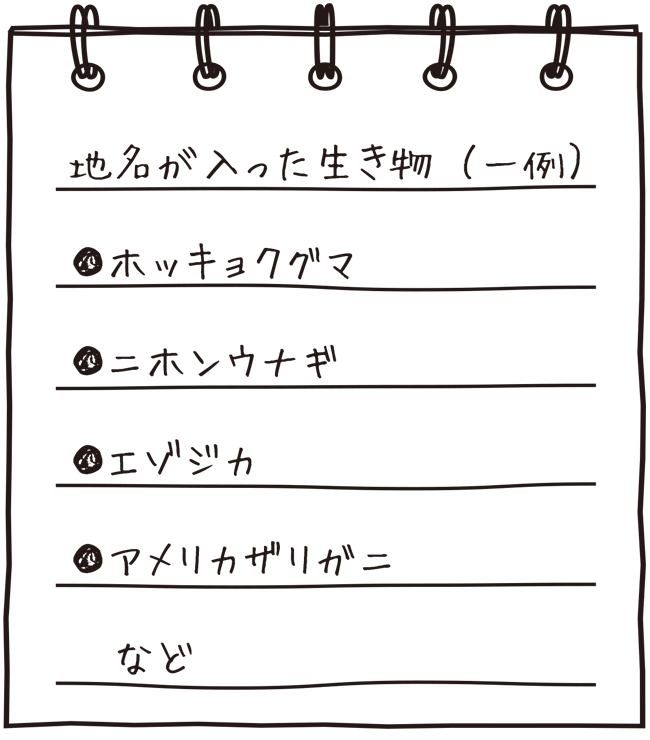 地名が入った生き物（一例）
●ホッキョクグマ
●ニホンウナギ
●エゾジカ
●アメリカザリガニ
など